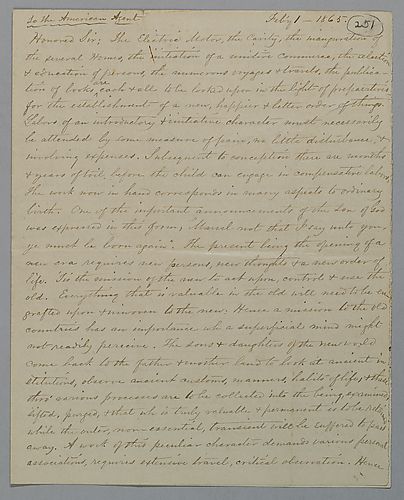 To the American Agent. Feb'y 1 - 1865. 251
Honored Sir; The Electric Motor, the Cavity, the inauguration of
the several Homes, the initiation of a unitive commerce, the selection
& education of persons, the numerous voyages & travels, the publica-
tion of books, are each & all to be looked upon in the light of preparatives
for the establishment of a new, happier & better order of things.
Labors of an introductory & initiative character must necessarily
be attended by some measure of pain, no little disturbance, &
involving expenses. Subsequent to conception there are months
& years of toil, before the child can engage in compensative labors.
The work now in hand corresponds in many aspects to ordinary
birth. One of the important announcements of the Son of God
was expressed in this form, Marvel not that I say unto you,
ye must be born again". The present being the opening of a
new era requires new persons, new thoughts & a new order of
life. 'Tis the mission of the new to act upon, control & use the
old. Everything that is valuable in the old will need to be en-
grafted upon & inwoven to the new. Hence a mission to the old
countries has an importance wh a superficial mind might
not readily perceive. The sons & daughters of the new world
come back to the father & mother land to look at ancient in-
stitutions, observe ancient customs, manners, habits of life, & these
thro' various processes are to be collected into the being, examined,
sifted, purged, & that wh is truly valuable & permanent is to be
while the outer, non-essential, transient will be suffered to pass
away. A work of this peculiar character demands various personal
associations, requires extensive travel, critical observation. Hence